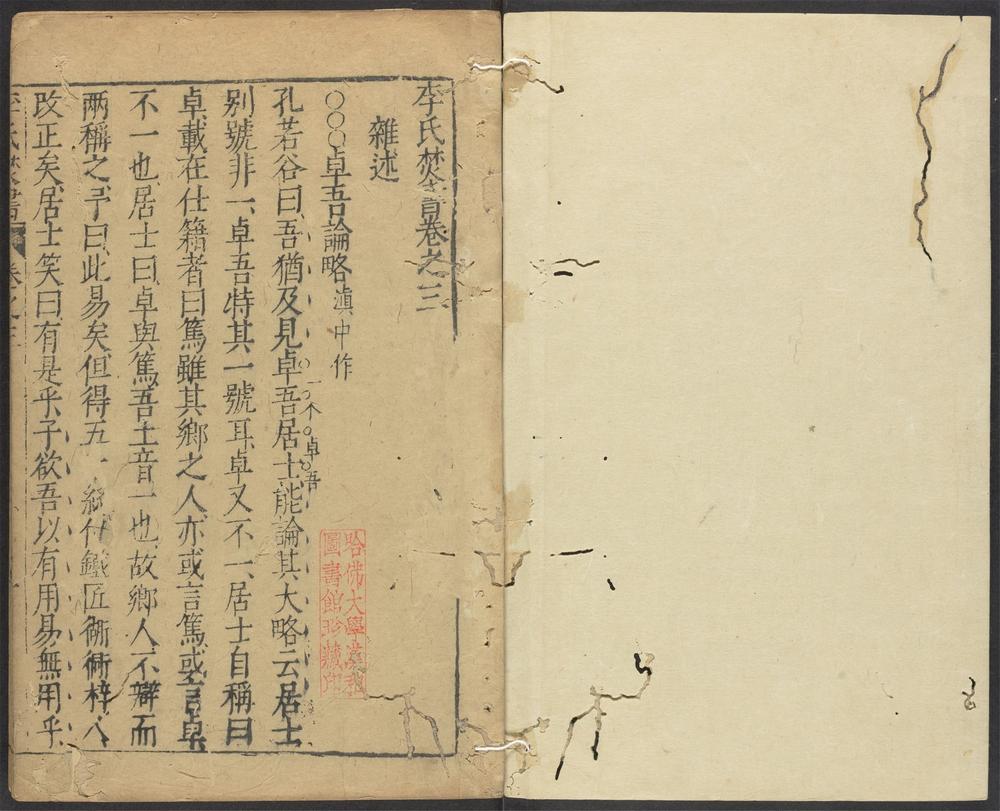 李氏焚書卷之三
雜述
○○○卓吾論略滇中作
孔若谷曰吾猶及見卓吾居士能論其大略云居士
別號非一卓吾特其一號耳卓又不一居士自稱曰
卓載在仕籍者曰篤雖其鄉之人亦或言篤或言卓
不一也居士曰卓與篤吾土音一也故鄉人不辯而
兩稱之予曰此易矣但得五 絲付鐵匠衚衕梓人
改正矣居士笑曰有是乎子欲吾以有用易無用乎
李氏焚書 卷之三
一个卓吾
哈佛大學漢和
圖書館珍藏印